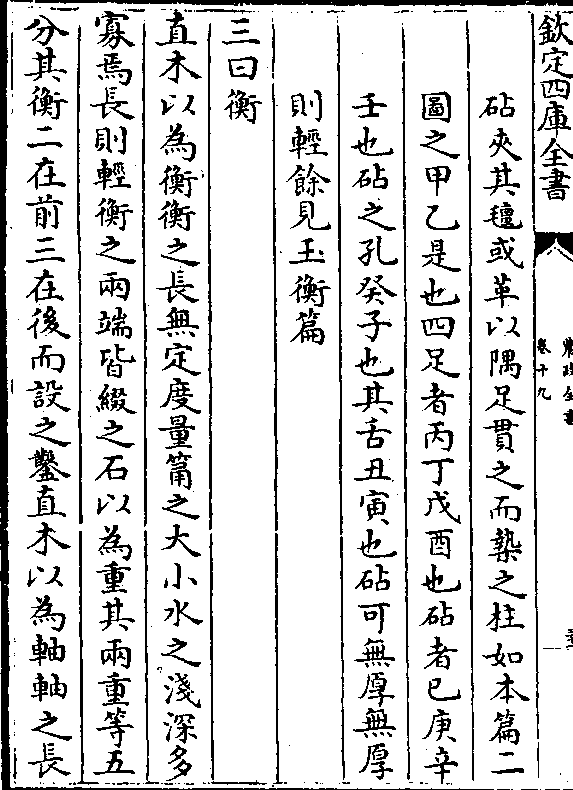 欽定四庫全書
農政全書
卷十九
砧夾其氊或革以隅足貫之而築之柱如本篇二
圖之甲乙是也四足者丙丁戊酉也砧者已庚辛
壬也砧之孔癸子也其舌丑寅也砧可無厚無厚
則輕餘見玉衡篇
三曰衡
直木以為衡衡之長無定度量筩之大小水之淺深多
寡焉長則輕衡之兩端皆綴之石以為重其兩重等五
分其衡二在前三在後而設之鑿直木以為軸軸之長